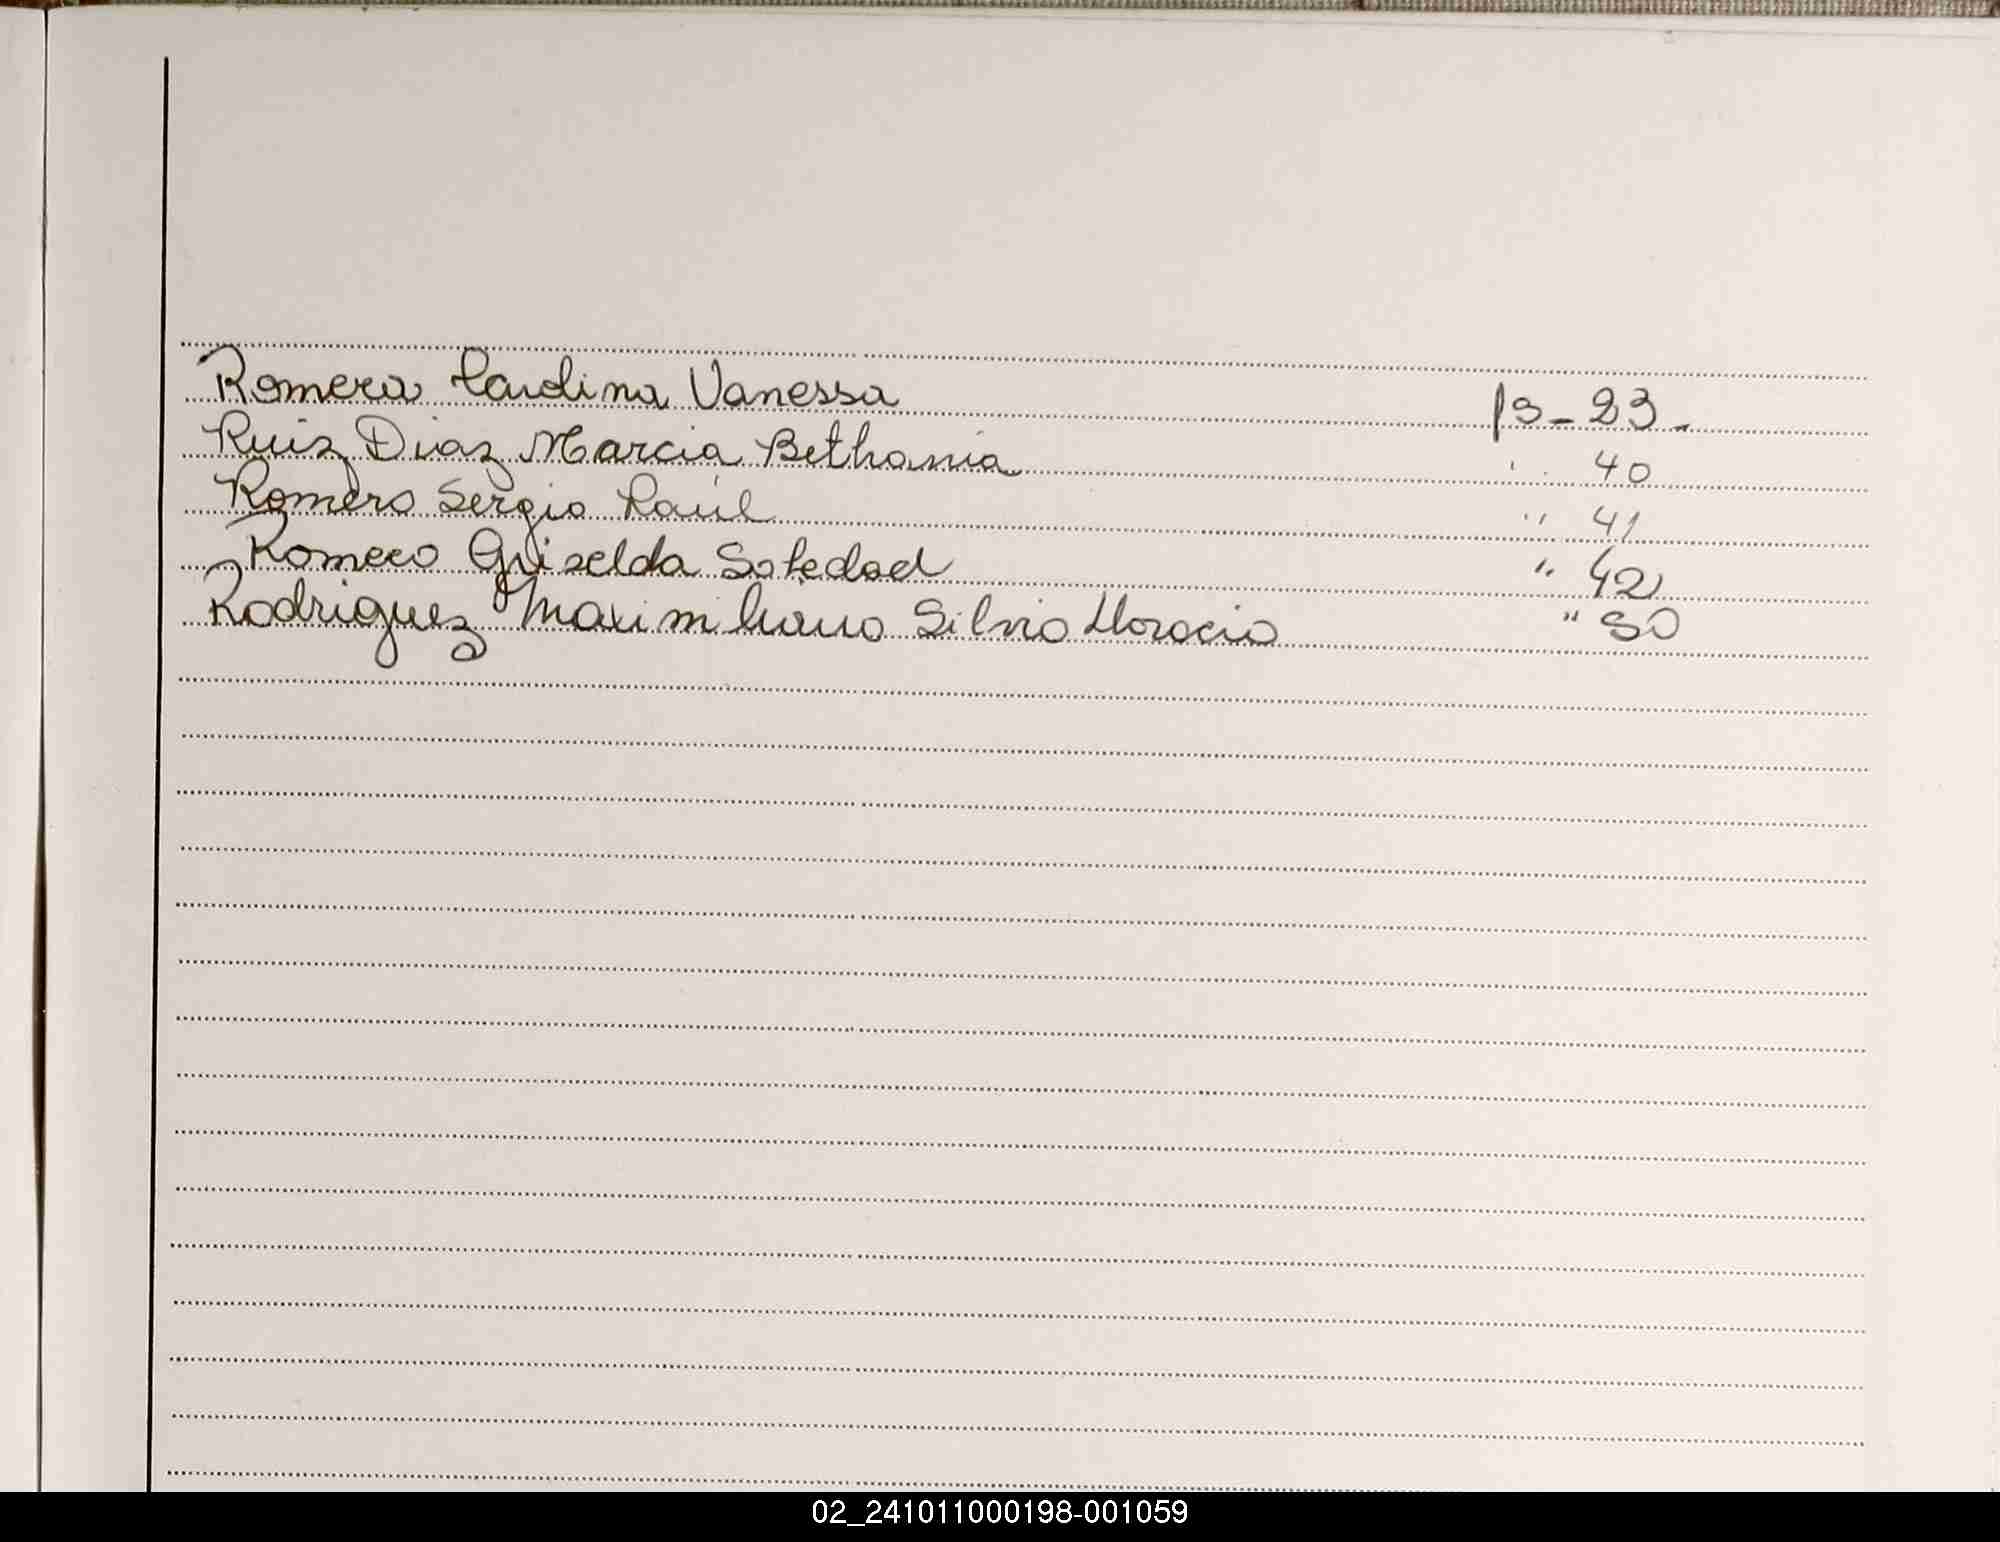 Romera Carolina Vanessa fs - 23 -
Ruiz Diaz Marcia Bethania " 40
Romero Sergio Raúl " 41
Romero Griselda Soledad " 42
Rodriguez Maximiliano Silvio Horacio " 50
02_241011000198-001059